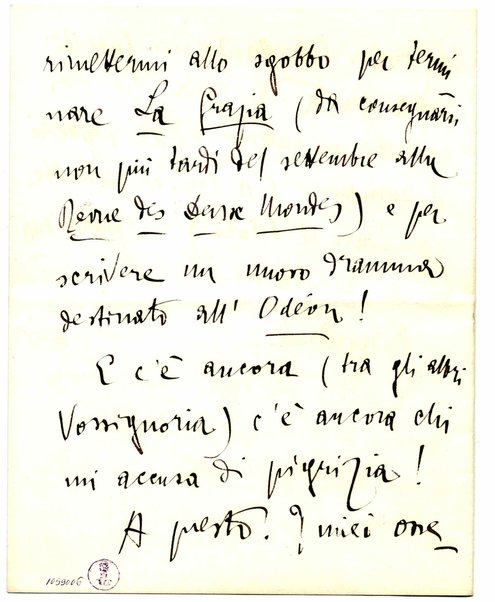 rimettermi allo sgobbo per termi
nare La Grazia (da consegnarsi
non più tardi del settembre alla
Revue des Deux Mondes) e per
scrivere un nuovo dramma
destinato all' Odéon!
E c'è ancora (tra gli altri
Vossignoria) c'è ancora chi
mi accusa di pigrizia!
A presto. I miei osse
1099006